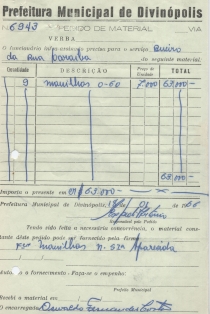 Prefeitura Municipal de Divinópolis
N. 6943 PEDIDO DE MATERIAL VIA
VERBA
O funcionário abaixo precisa para o serviço
da rua paraiba do seguinte material.
Quantidade DESCRIÇÃO Preço da Unidade TOTAL
9 manilhas 0-60 7.000 63.000
63.000
Importa o presente em 63.000
Prefeitura Municipal de Divinópolis, de 66
Responsável pelo Pedido
Tendo sido feita a necessária concorrência, o material constante dêste pedido pode ser fornecido pela firma
Manilhas N. Sra Aparecida
Autorizo o fornecimento. Faça-se o empenho:
Prefeito Municipal
Recebi o material em
O encarregado Oswaldo Fernandes